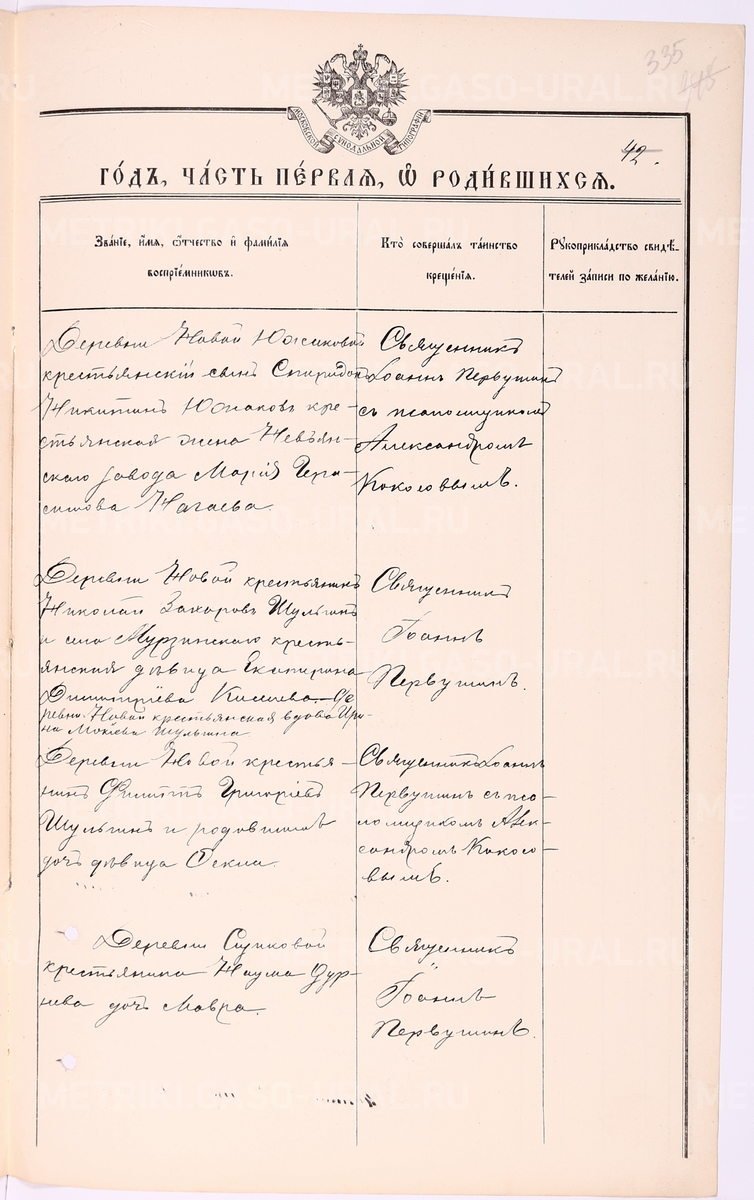 335
42.
МОСКОВСКОЙ СѴНОДАЛЬНОЙ ТИПОГРАФІИ
ГО́ДЪ, ЧА́СТЬ ПЕ́РВАЯ, Ѡ҆ РОДИ́ВШИХСЯ.
Зва́нїе, и҆́мя, ѻ҆́тчество и҆ фами́лїя
воспрїе́мникωвъ.
Кто̀ соверша́лъ та́инство
креще́нїя.
Рꙋкоприкла́дство свидѣ́-
телей за́писи по жела́нїю.
Деревни Новой
крестьянскій сынъ Спиридонъ
Никитинъ Южаковъ кре-
стьянская жена Невьян-
скаго завода Марія Гера-
симова Нагаева.
Священникъ
Іоаннъ Первушинъ
съ псаломщикомъ
Александромъ
Кокосовымъ.
Деревни Новой крестьянинъ
Николай Захаровъ Шульгинъ
и села Мурзинскаго кресть-
янская дѣвица Екатерина
Димитріева Де-
ревни Новой крестьянская вдова Ири-
на Мокіева Шульгина
Священникъ
Іоаннъ
Первушинъ.
Деревни Новой крестья-
нинъ Филиппъ Григоріевъ
Шульгинъ и родившаго
дочь дѣвица Өекла.
Священникъ Іоаннъ
Первушинъ съ пса-
ломщикомъ Алек-
сандромъ Кокосо-
вымъ.
Деревни Сизиковой
крестьянина Наума Дур-
нева дочь Мавра.
Священникъ
Іоаннъ
Первушинъ.
METRIKI.GASO-URAL.RU